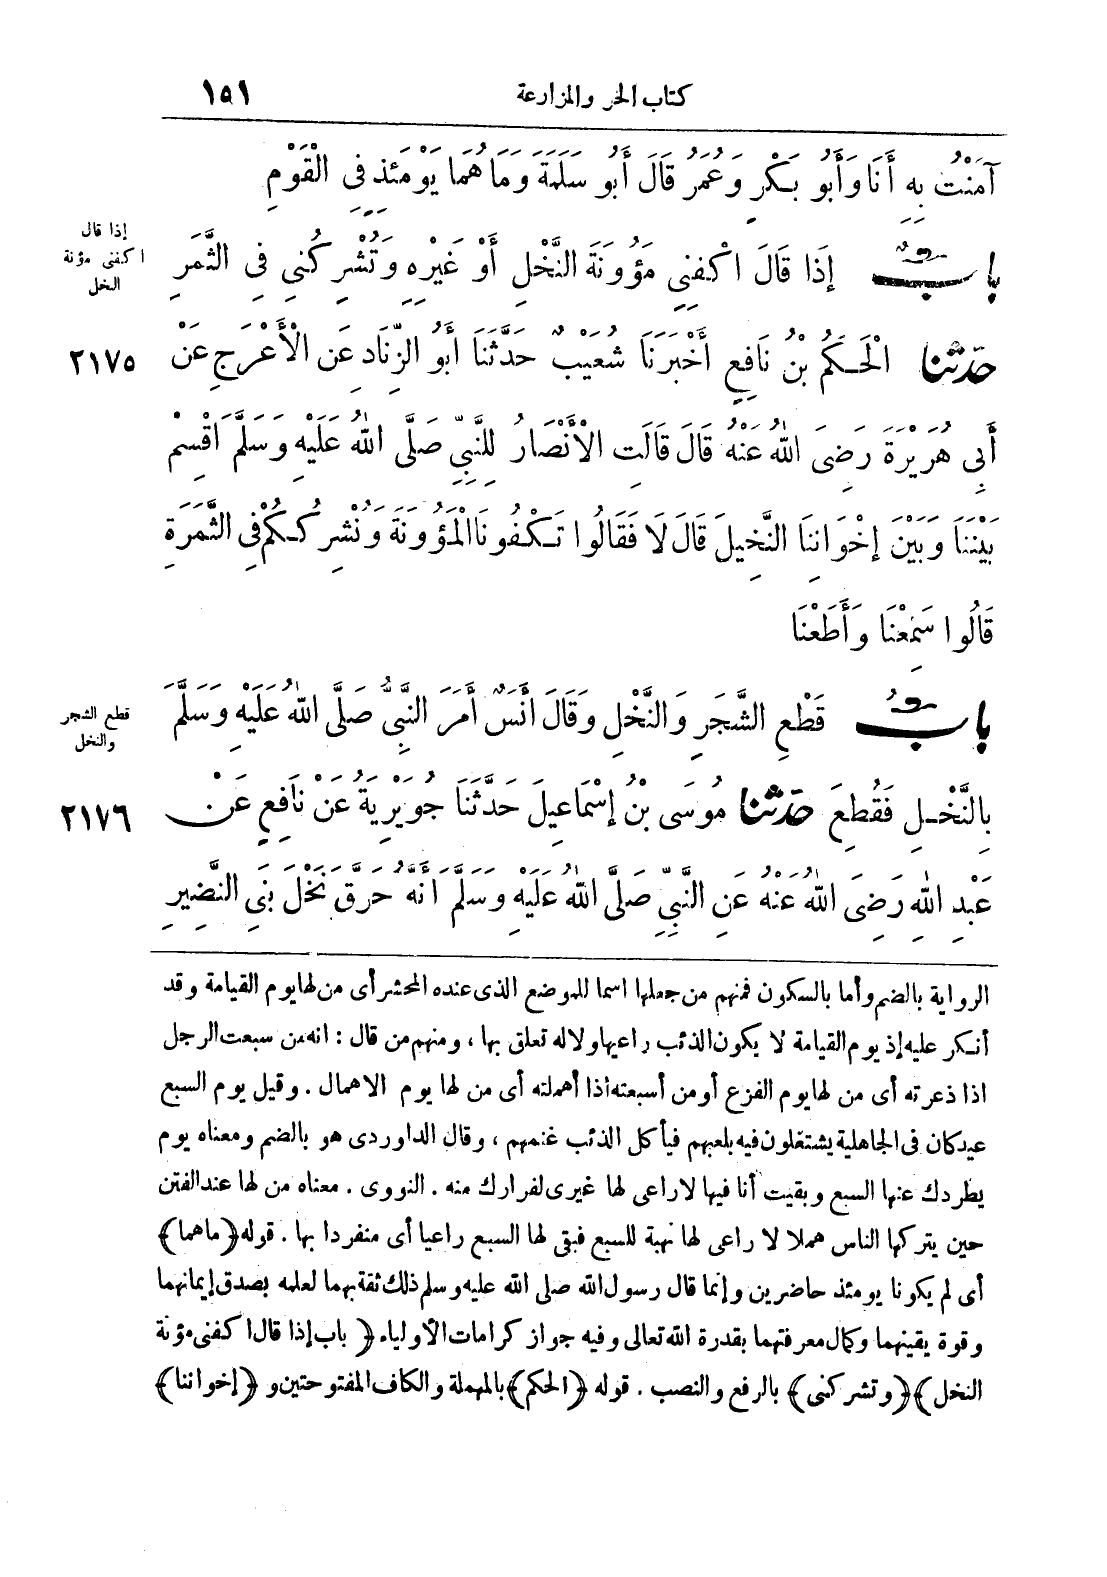 كتاب الحرث والمزارعة ١٥١
آمَنْتُ بِهِ أَنَا وَأَبُو بَكْرٍ وَعُمَرُ قَالَ أَبُو سَلَمَةَ وَمَا هُمَا يَوْمَئِذٍ فِي الْقَوْمِ
بابٌ إِذَا قَالَ اكْفِنِي مَؤُونَةَ النَّخْلِ أَوْ غَيْرِهِ وَتُشْرِكُنِي فِي الثَّمَرِ
إذا قال
اكفنى مؤنة
النخل
حَدَّثَنَا الْحَكَمُ بْنُ نَافِعٍ أَخْبَرَنَا شُعَيْبٌ حَدَّثَنَا أَبُو الزِّنَادِ عَنِ الْأَعْرَجِ عَنْ
٢١٧٥
أَبِي هُرَيْرَةَ رَضِيَ اللهُ عَنْهُ قَالَ قَالَتِ الْأَنْصَارُ لِلنَّبِيِّ صَلَّى اللهُ عَلَيْهِ وَسَلَّمَ اقْسِمْ
بَيْنَنَا وَبَيْنَ إِخْوَانِنَا النَّخِيلَ قَالَ لَا فَقَالُوا تَكْفُونَا الْمَؤُونَةَ وَنُشْرِكُكُمْ فِي الثَّمَرَةِ
قَالُوا سَمِعْنَا وَأَطَعْنَا
بابُ قَطْعِ الشَّجَرِ وَالنَّخْلِ وَقَالَ أَنَسٌ أَمَرَ النَّبِيُّ صَلَّى اللهُ عَلَيْهِ وَسَلَّمَ
قطع الشجر
والنخل
بِالنَّخْلِ فَقُطِعَ حَدَّثَنَا مُوسَى بْنُ إِسْمَاعِيلَ حَدَّثَنَا جُوَيْرِيَةُ عَنْ نَافِعٍ عَنْ
٢١٧٦
عَبْدِ اللهِ رَضِيَ اللهُ عَنْهُ عَنِ النَّبِيِّ صَلَّى اللهُ عَلَيْهِ وَسَلَّمَ أَنَّهُ حَرَّقَ نَخْلَ بَنِي النَّضِيرِ
الرواية بالضم وأما بالسكون فمنهم من جعلها اسما للموضع الذى عنده المحشر أى من لها يوم القيامة وقد
أنكر عليه إذ يوم القيامة لا يكون الذئب راعيها ولا له تعلق بها ، ومنهم من قال : انه من سبعت الرجل
اذا ذعرته أى من لها يوم الفزع أو من أسبعته اذا أهملته أى من لها يوم الاهمال . وقيل يوم السبع
عيد كان فى الجاهلية يشتغلون فيه بلعبهم فيأكل الذئب غنمهم ، وقال الداوردى هو بالضم ومعناه يوم
يطردك عنها السبع وبقيت أنا فيها لا راعى لها غيرى لفرارك منه . النووى . معناه من لها عند الفتن
حين يتركها الناس هملا لا راعى لها نهبة للسبع فبقى لها السبع راعيا أى منفردا بها . قوله ﴿ما هما﴾
أى لم يكونا يومئذ حاضرين وإنما قال رسول الله صلى الله عليه وسلم ذلك ثقة بهما لعلمه بصدق إيمانهما
وقوة يقينهما وكمال معرفتهما بقدرة الله تعالى وفيه جواز كرامات الأولياء ﴿باب إذا قال اكفنى مؤنة
النخل﴾ ﴿وتشركنى﴾ بالرفع والنصب . قوله ﴿الحكم﴾ بالمهملة والكاف المفتوحتين و ﴿إخواننا﴾